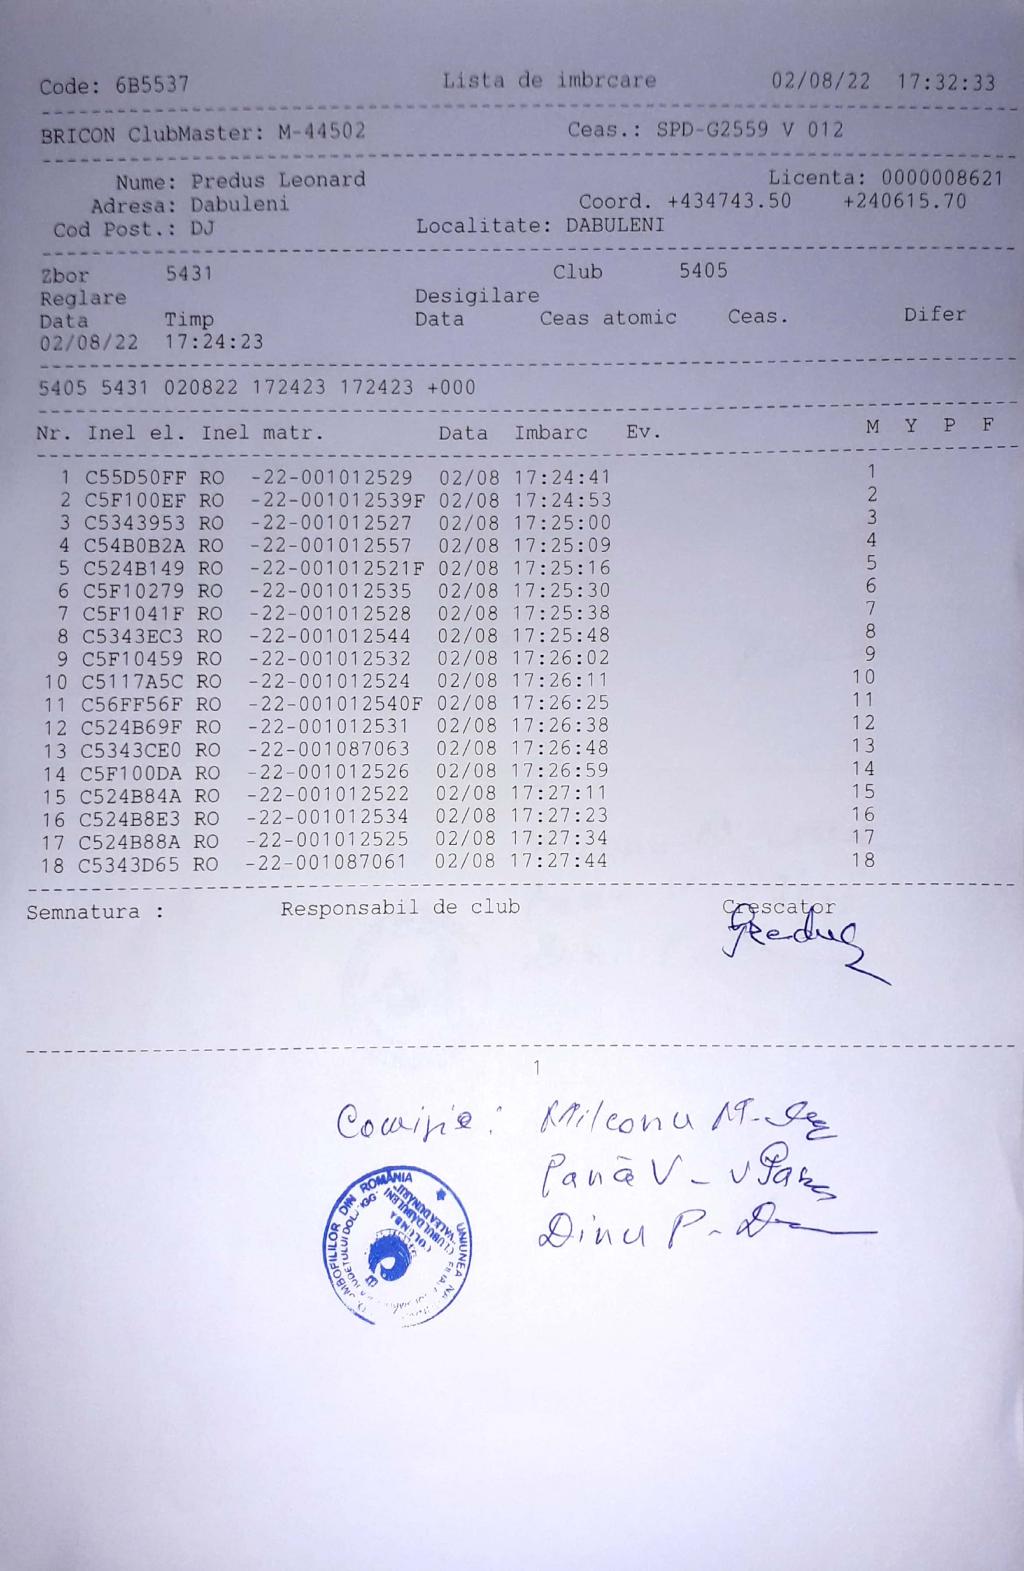 Code: 6B5537 Lista de imbrcare 02/08/22 17:32:33
BRICON ClubMaster: M-44502 Ceas.: SPD-G2559 V 012
Nume: Predus Leonard Licenta: 0000008621
Adresa: Dabuleni Coord. +434743.50 +240615.70
Cod Post.: DJ Localitate: DABULENI
Zbor 5431 Club 5405
Reglare Desigilare
Data Timp Data Ceas atomic Ceas. Difer
02/08/22 17:24:23
5405 5431 020822 172423 172423 +000
Nr. Inel el. Inel matr. Data Imbarc Ev. M Y P F
1 C55D50FF RO -22-001012529 02/08 17:24:41 1
2 C5F100EF RO -22-001012539F 02/08 17:24:53 2
3 C5343953 RO -22-001012527 02/08 17:25:00 3
4 C54B0B2A RO -22-001012557 02/08 17:25:09 4
5 C524B149 RO -22-001012521F 02/08 17:25:16 5
6 C5F10279 RO -22-001012535 02/08 17:25:30 6
7 C5F1041F RO -22-001012528 02/08 17:25:38 7
8 C5343EC3 RO -22-001012544 02/08 17:25:48 8
9 C5F10459 RO -22-001012532 02/08 17:26:02 9
10 C5117A5C RO -22-001012524 02/08 17:26:11 10
11 C56FF56F RO -22-001012540F 02/08 17:26:25 11
12 C524B69F RO -22-001012531 02/08 17:26:38 12
13 C5343CE0 RO -22-001087063 02/08 17:26:48 13
14 C5F100DA RO -22-001012526 02/08 17:26:59 14
15 C524B84A RO -22-001012522 02/08 17:27:11 15
16 C524B8E3 RO -22-001012534 02/08 17:27:23 16
17 C524B88A RO -22-001012525 02/08 17:27:34 17
18 C5343D65 RO -22-001087061 02/08 17:27:44 18
Semnatura : Responsabil de club Crescator
Predus
1
Comisie: Milcomu M-
Pană V - VPana
Dinu P. - D
UNIUNEA COLUMBOFILILOR DIN ROMÂNIA
JUDEȚULUI DOLJ
COLUMBA
CLUBUL DABULENI
"VALEA DUNARII"